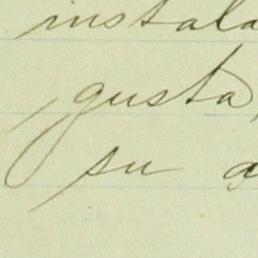 instala
gusta,
su a